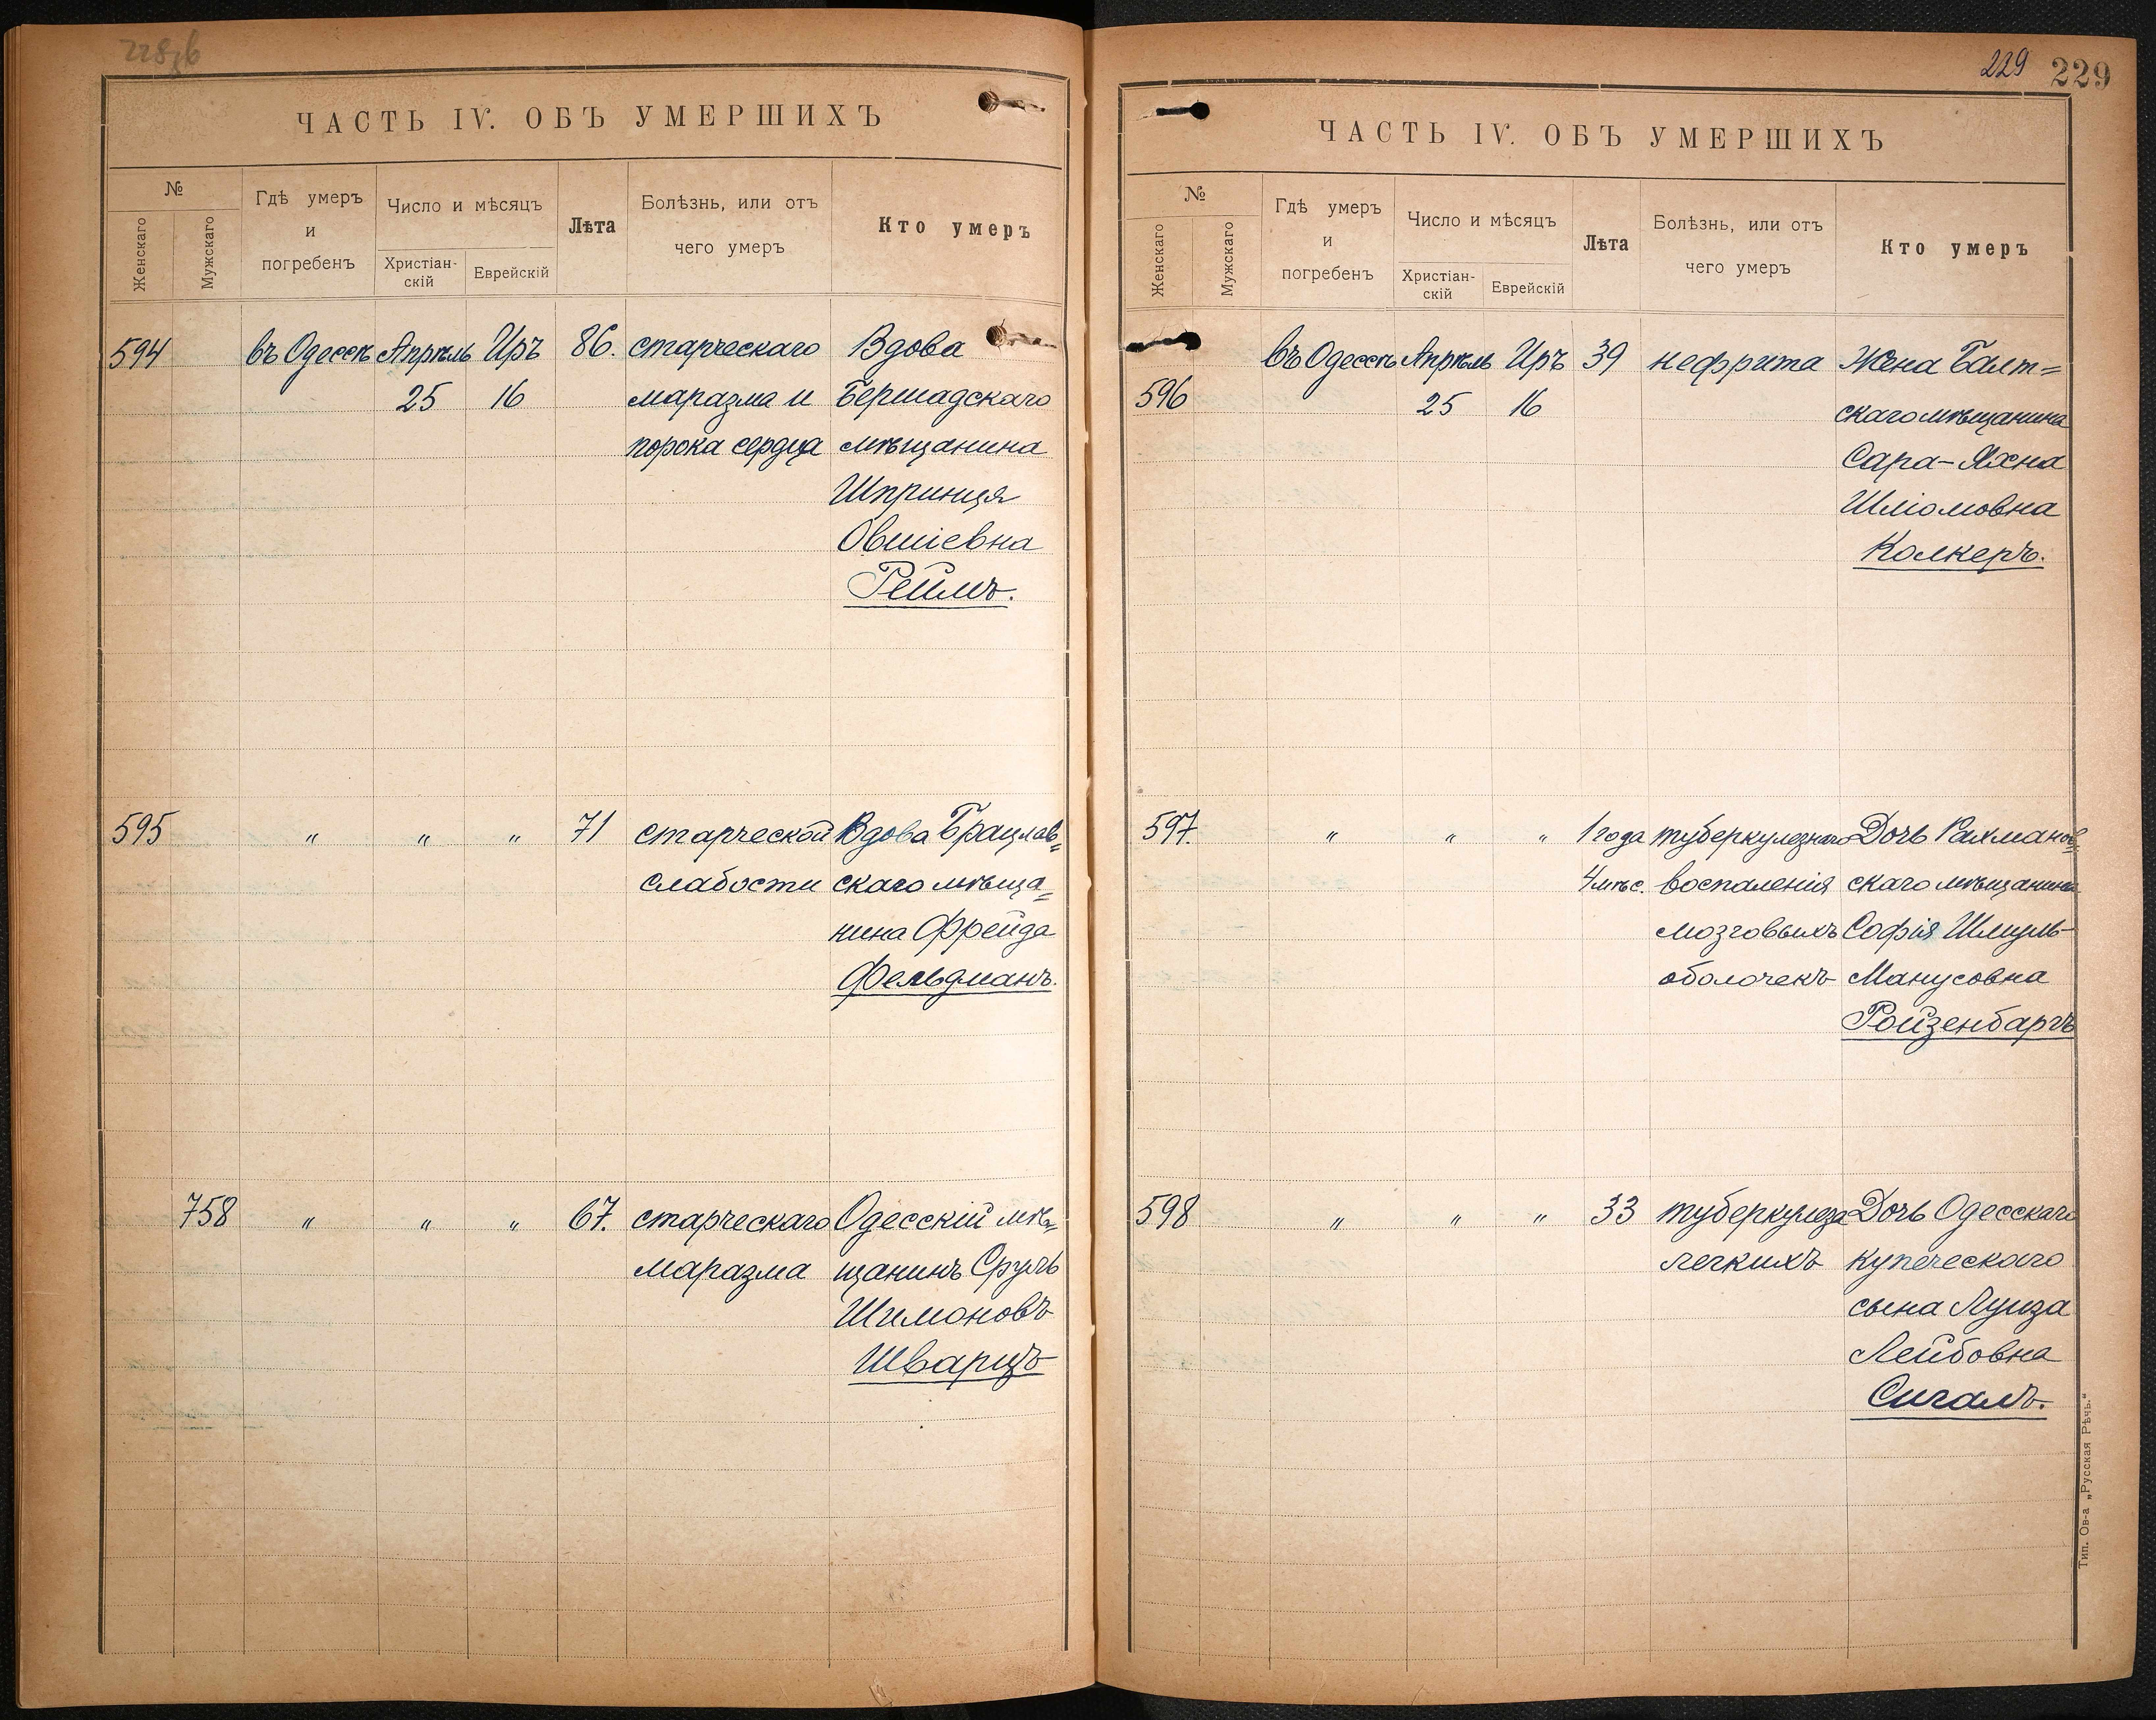 228об
ЧАСТЬ IV. ОБЪ УМЕРШИХЪ
№
Женскаго
Мужскаго
Гдѣ умеръ
и
погребенъ
Число и мѣсяцъ
Христіан-
скій
Еврейскій
Лѣта
Болѣзнь, или отъ
чего умеръ
Кто умеръ
594 въ Одессѣ Апрѣль Иръ 86. старческаго Вдова
25 16 маразма и Бершадскаго
порока сердца мѣщанина
Шпринця
Овшіевна
Рейлъ.
595 " " " 71 старческой Вдова Брацлав=
слабости скаго мѣща=
нина Фрейда
Фельдманъ.
758 " " " 67. старческаго Одесскій мѣ=
маразма щанинъ Сруль
Шимоновъ
Шварцъ
229 229
ЧАСТЬ IV. ОБЪ УМЕРШИХЪ
№
Женскаго
Мужскаго
Гдѣ умеръ
и
погребенъ
Число и мѣсяцъ
Христіан-
скій
Еврейскій
Лѣта
Болѣзнь, или отъ
чего умеръ
Кто умеръ
въ Одессѣ Апрѣль Иръ 39 нефрита Жена Балт=
596 25 16 скаго мѣщанина
Сара-Яхна
Шліомовна
Колкеръ.
597. " " " 1 года туберкулезнаго Дочь Рахманов=
4 мѣс. воспаленія скаго мѣщанина
мозговыхъ Софія Шмуль-
оболочекъ Манусовна
Ройзенбаргъ
598 " " " 33 туберкулеза Дочь Одесскаго
легкихъ купеческаго
сына Луиза
Лейбовна
Сигалъ.
Тип. Ов-а „Русская Рѣчь."